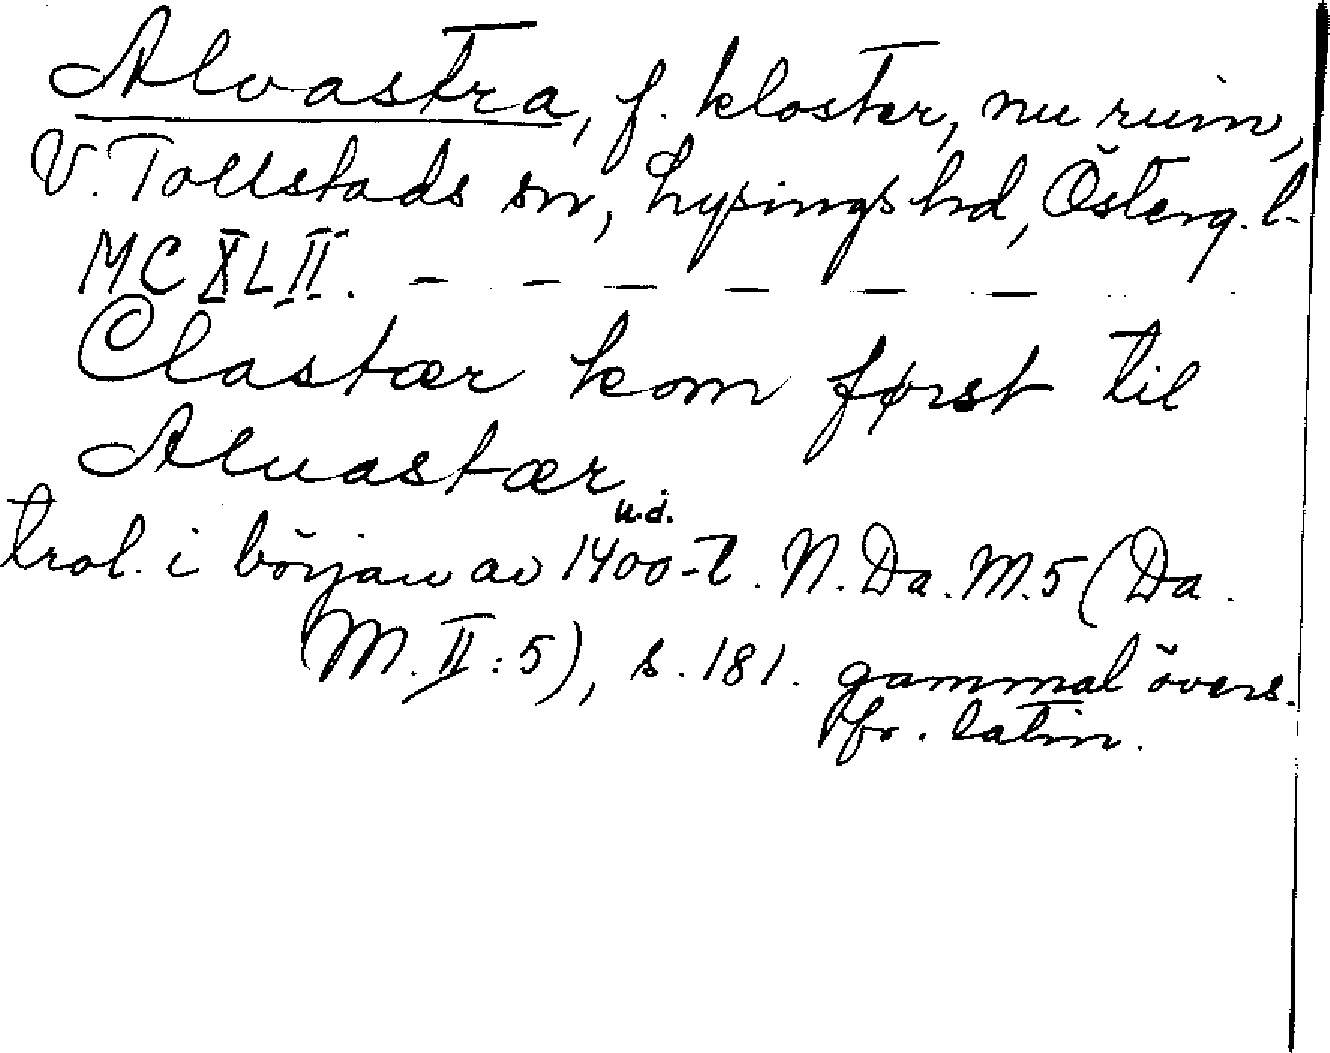 Alvastra, f. kloster, nu ruin,
V. Tollstads sn, Lysings hd, Österg. l.
MCXLII. — — — — — —
Clastær kom først til
Aluastær.
u.d.
trol. i början av 1400-t. N. Da. M. 5 (Da.
M. II: 5), s. 181. gammal övers.
fr. latin.